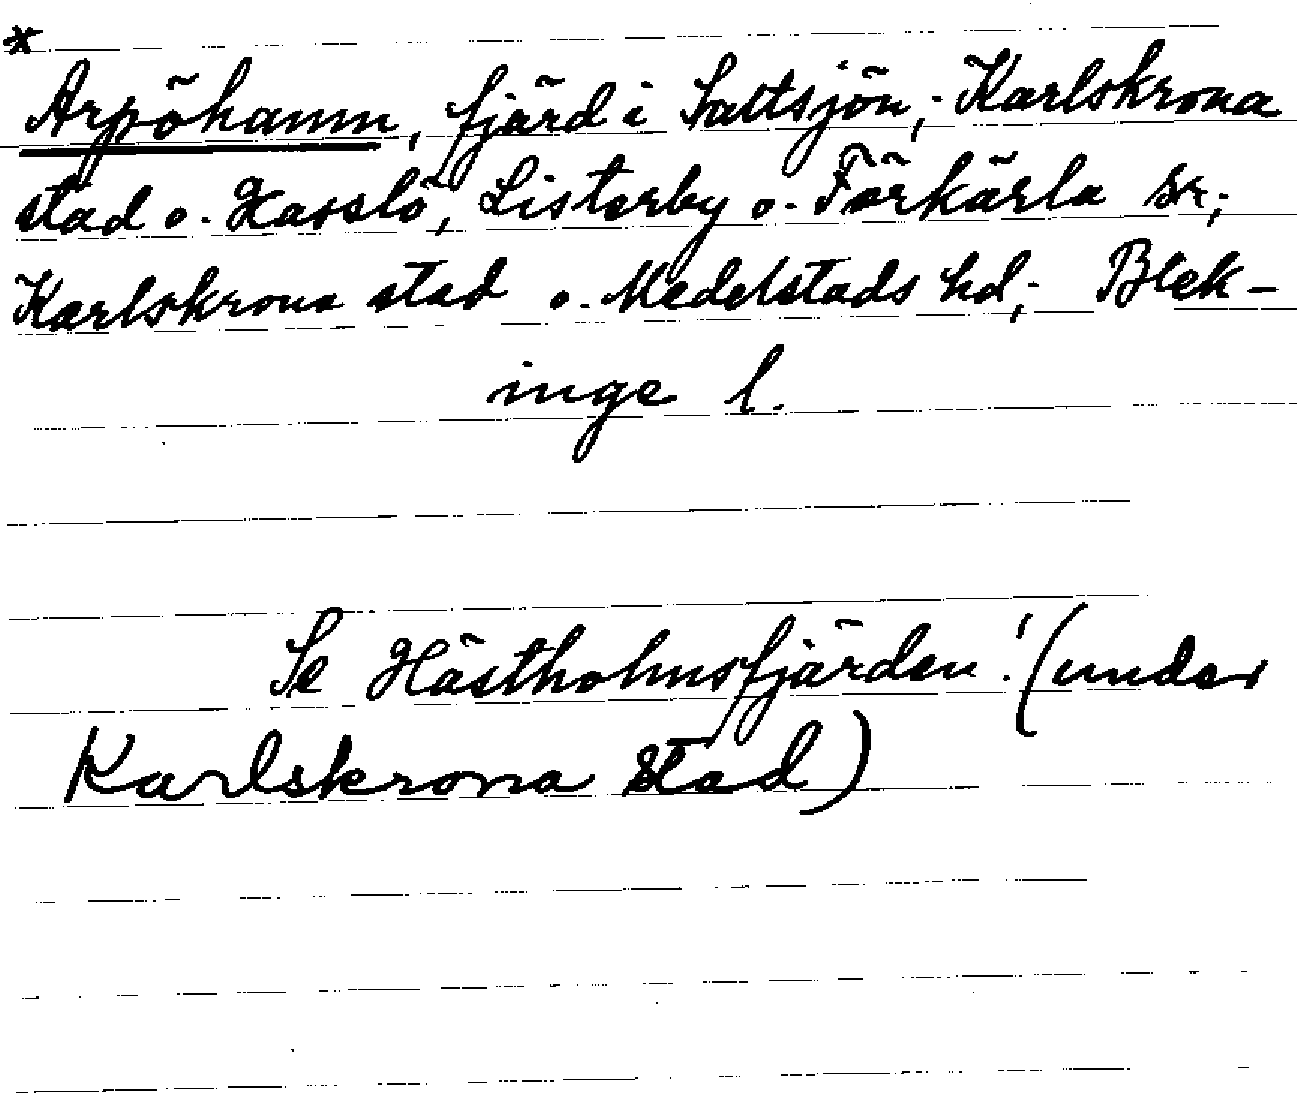 *
Arpöhamn, fjärd i Saltsjön; Karlskrona
stad o. Hasslö, Listerby o. Förkärla sr;
Karlskrona stad o. Medelstads hd; Blek-
inge l.
Se Hästholmsfjärden! (under
Karlskrona stad)